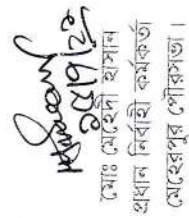 ২৫/৭/২২
মোঃ মেহেদী হাসান
প্রধান নির্বাহী কর্মকর্তা
মেহেরপুর পৌরসভা।